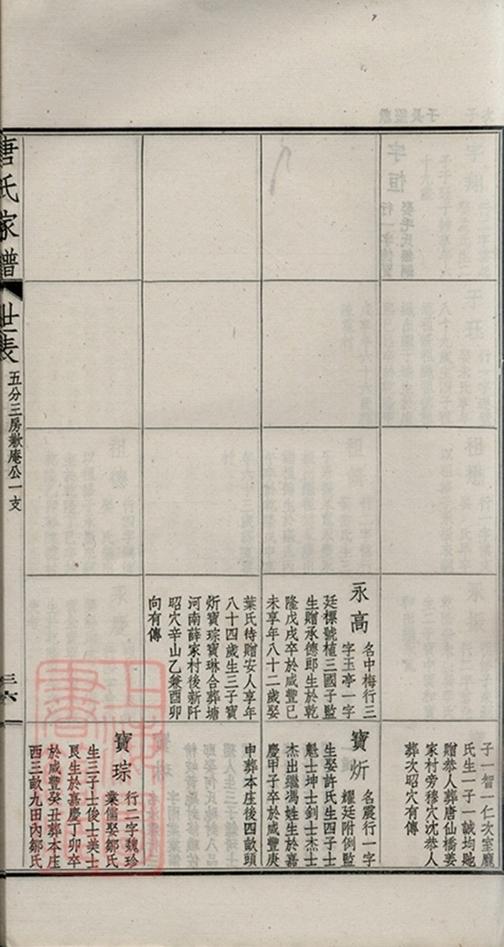 子一智一仁次室龐
氏生一子一誠均貤
贈恭人葬唐仙橋姜
家村旁穆穴沈恭人
葬次昭穴有傳
永高
名中梅行三
字玉亭一字
廷標號植三國子監
生贈承德郎生於乾
隆戊戌卒於咸豐己
未享年八十二歲娶
葉氏待贈安人享年
八十四歲生三子寶
炘寶琮寶琳合葬塘
河南薛家村後新阡
昭穴辛山乙兼酉卯
向有傳
寶炘
名震行一字
耀廷附例監
生娶許氏生四子士
魁士坤士釗士杰士
杰出繼馮姓生於嘉
慶甲子卒於咸豐庚
申葬本庄後四畝頭
寶琮
行二字魏珍
業儒娶鄒氏
生三子士俊士美士
艮生於嘉慶丁卯卒
於咸豐癸丑葬本庄
西三畝九田內鄒氏
唐氏家譜
世表
五分三房歉庵公一支
三六